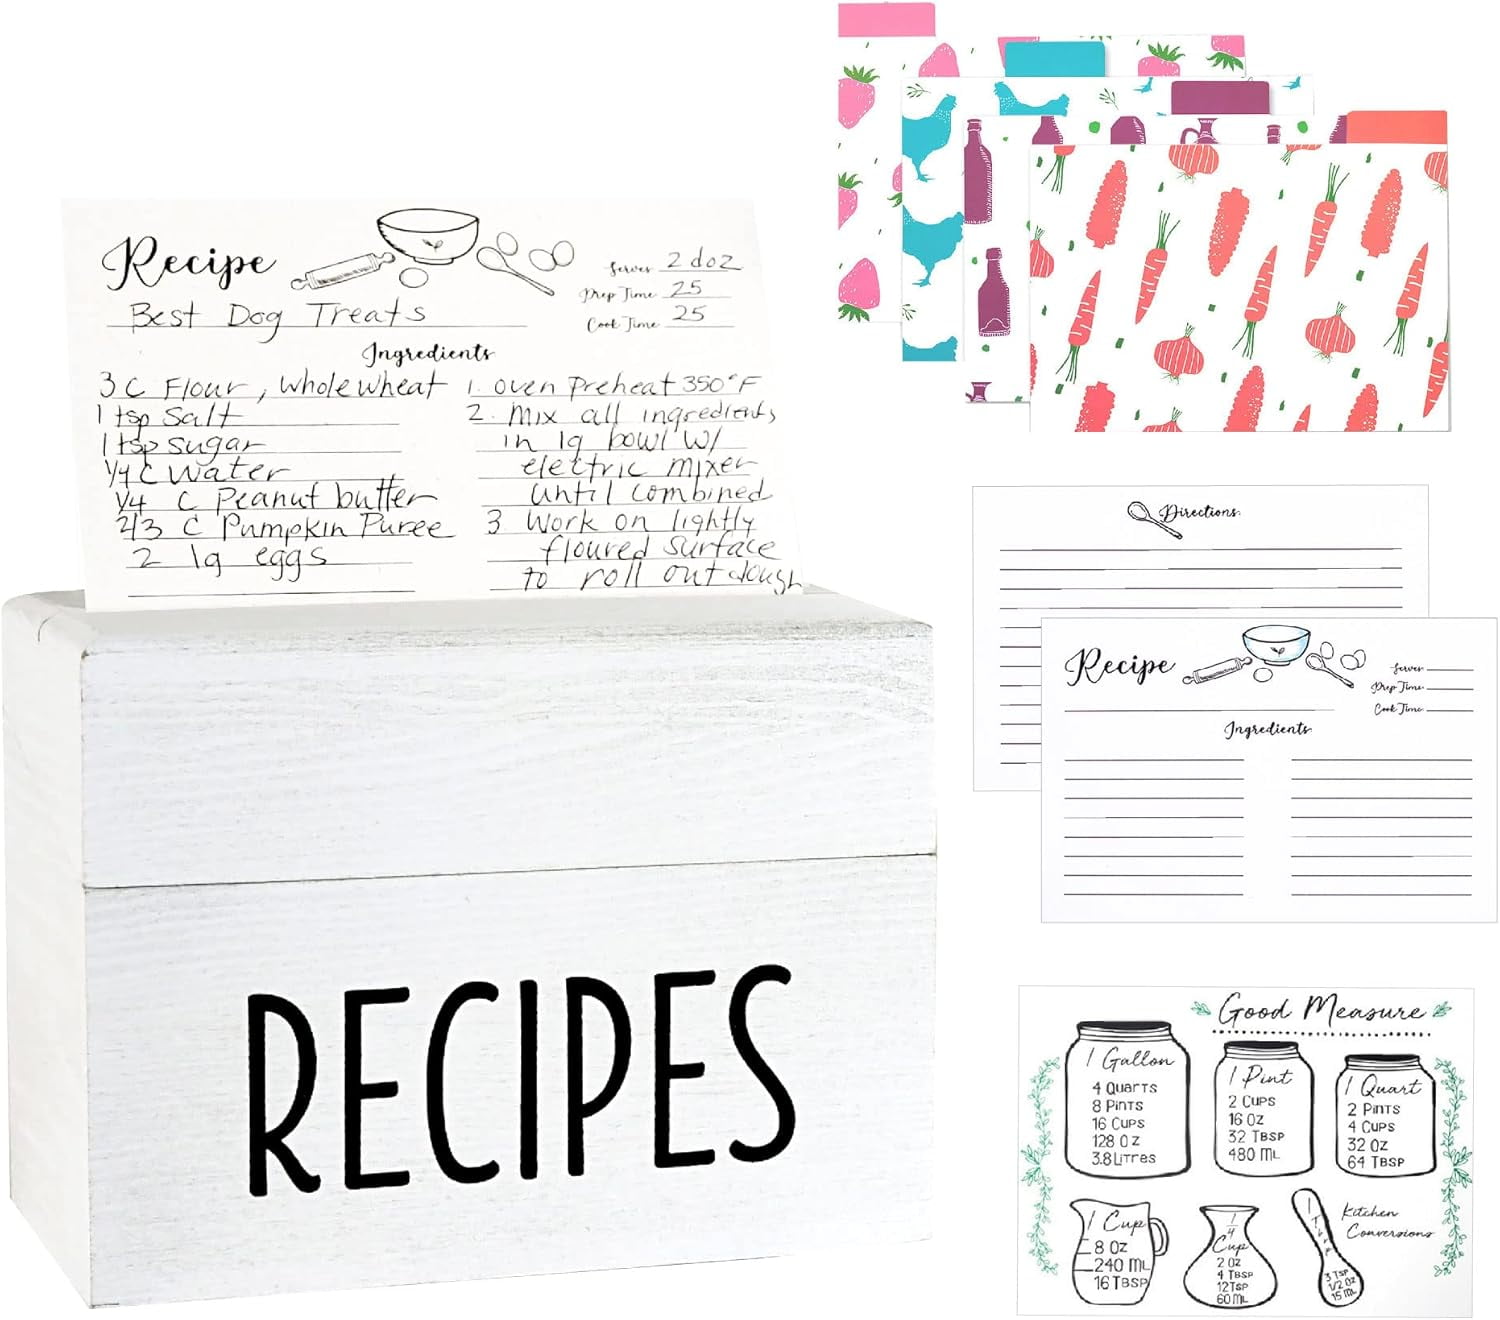 Recipe
Serves 2 doz
Prep Time 25
Cook Time 25
Best Dog Treats
Ingredients
3 C Flour, whole wheat
1 tsp Salt
1 tsp sugar
1/4 C Water
1/4 C Peanut butter
2/3 C Pumpkin Puree
2 lg eggs
1. oven preheat 350°F
2. Mix all ingredients
in lg bowl w/
electric mixer
until combined
3 Work on lightly
floured surface
to roll out dough
RECIPES
Directions
Recipe
Serves
Prep Time
Cook Time
Ingredients
Good Measure
1 Gallon
4 Quarts
8 Pints
16 Cups
128 Oz
3.8 Litres
1 Pint
2 Cups
16 Oz
32 Tbsp
480 mL
1 Quart
2 Pints
4 Cups
32 Oz
64 Tbsp
1 Cup
8 Oz
240 mL
16 Tbsp
1/4
Cup
2 Oz
4 Tbsp
12 Tsp
60 mL
1
3 Tsp
1/2 Oz
15 mL
Kitchen
Conversions